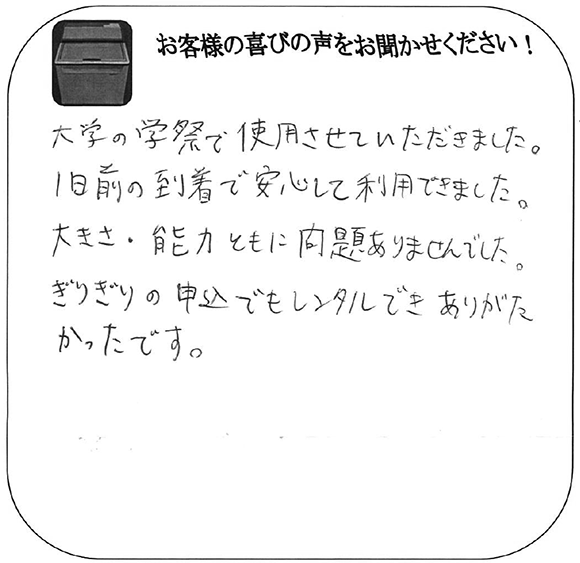 お客様の喜びの声をお聞かせください!
大学の学祭で使用させていただきました。
1日前の到着で安心して利用できました。
大きさ・能力ともに問題ありませんでした。
ぎりぎりの申込でもレンタルできありがた
かったです。